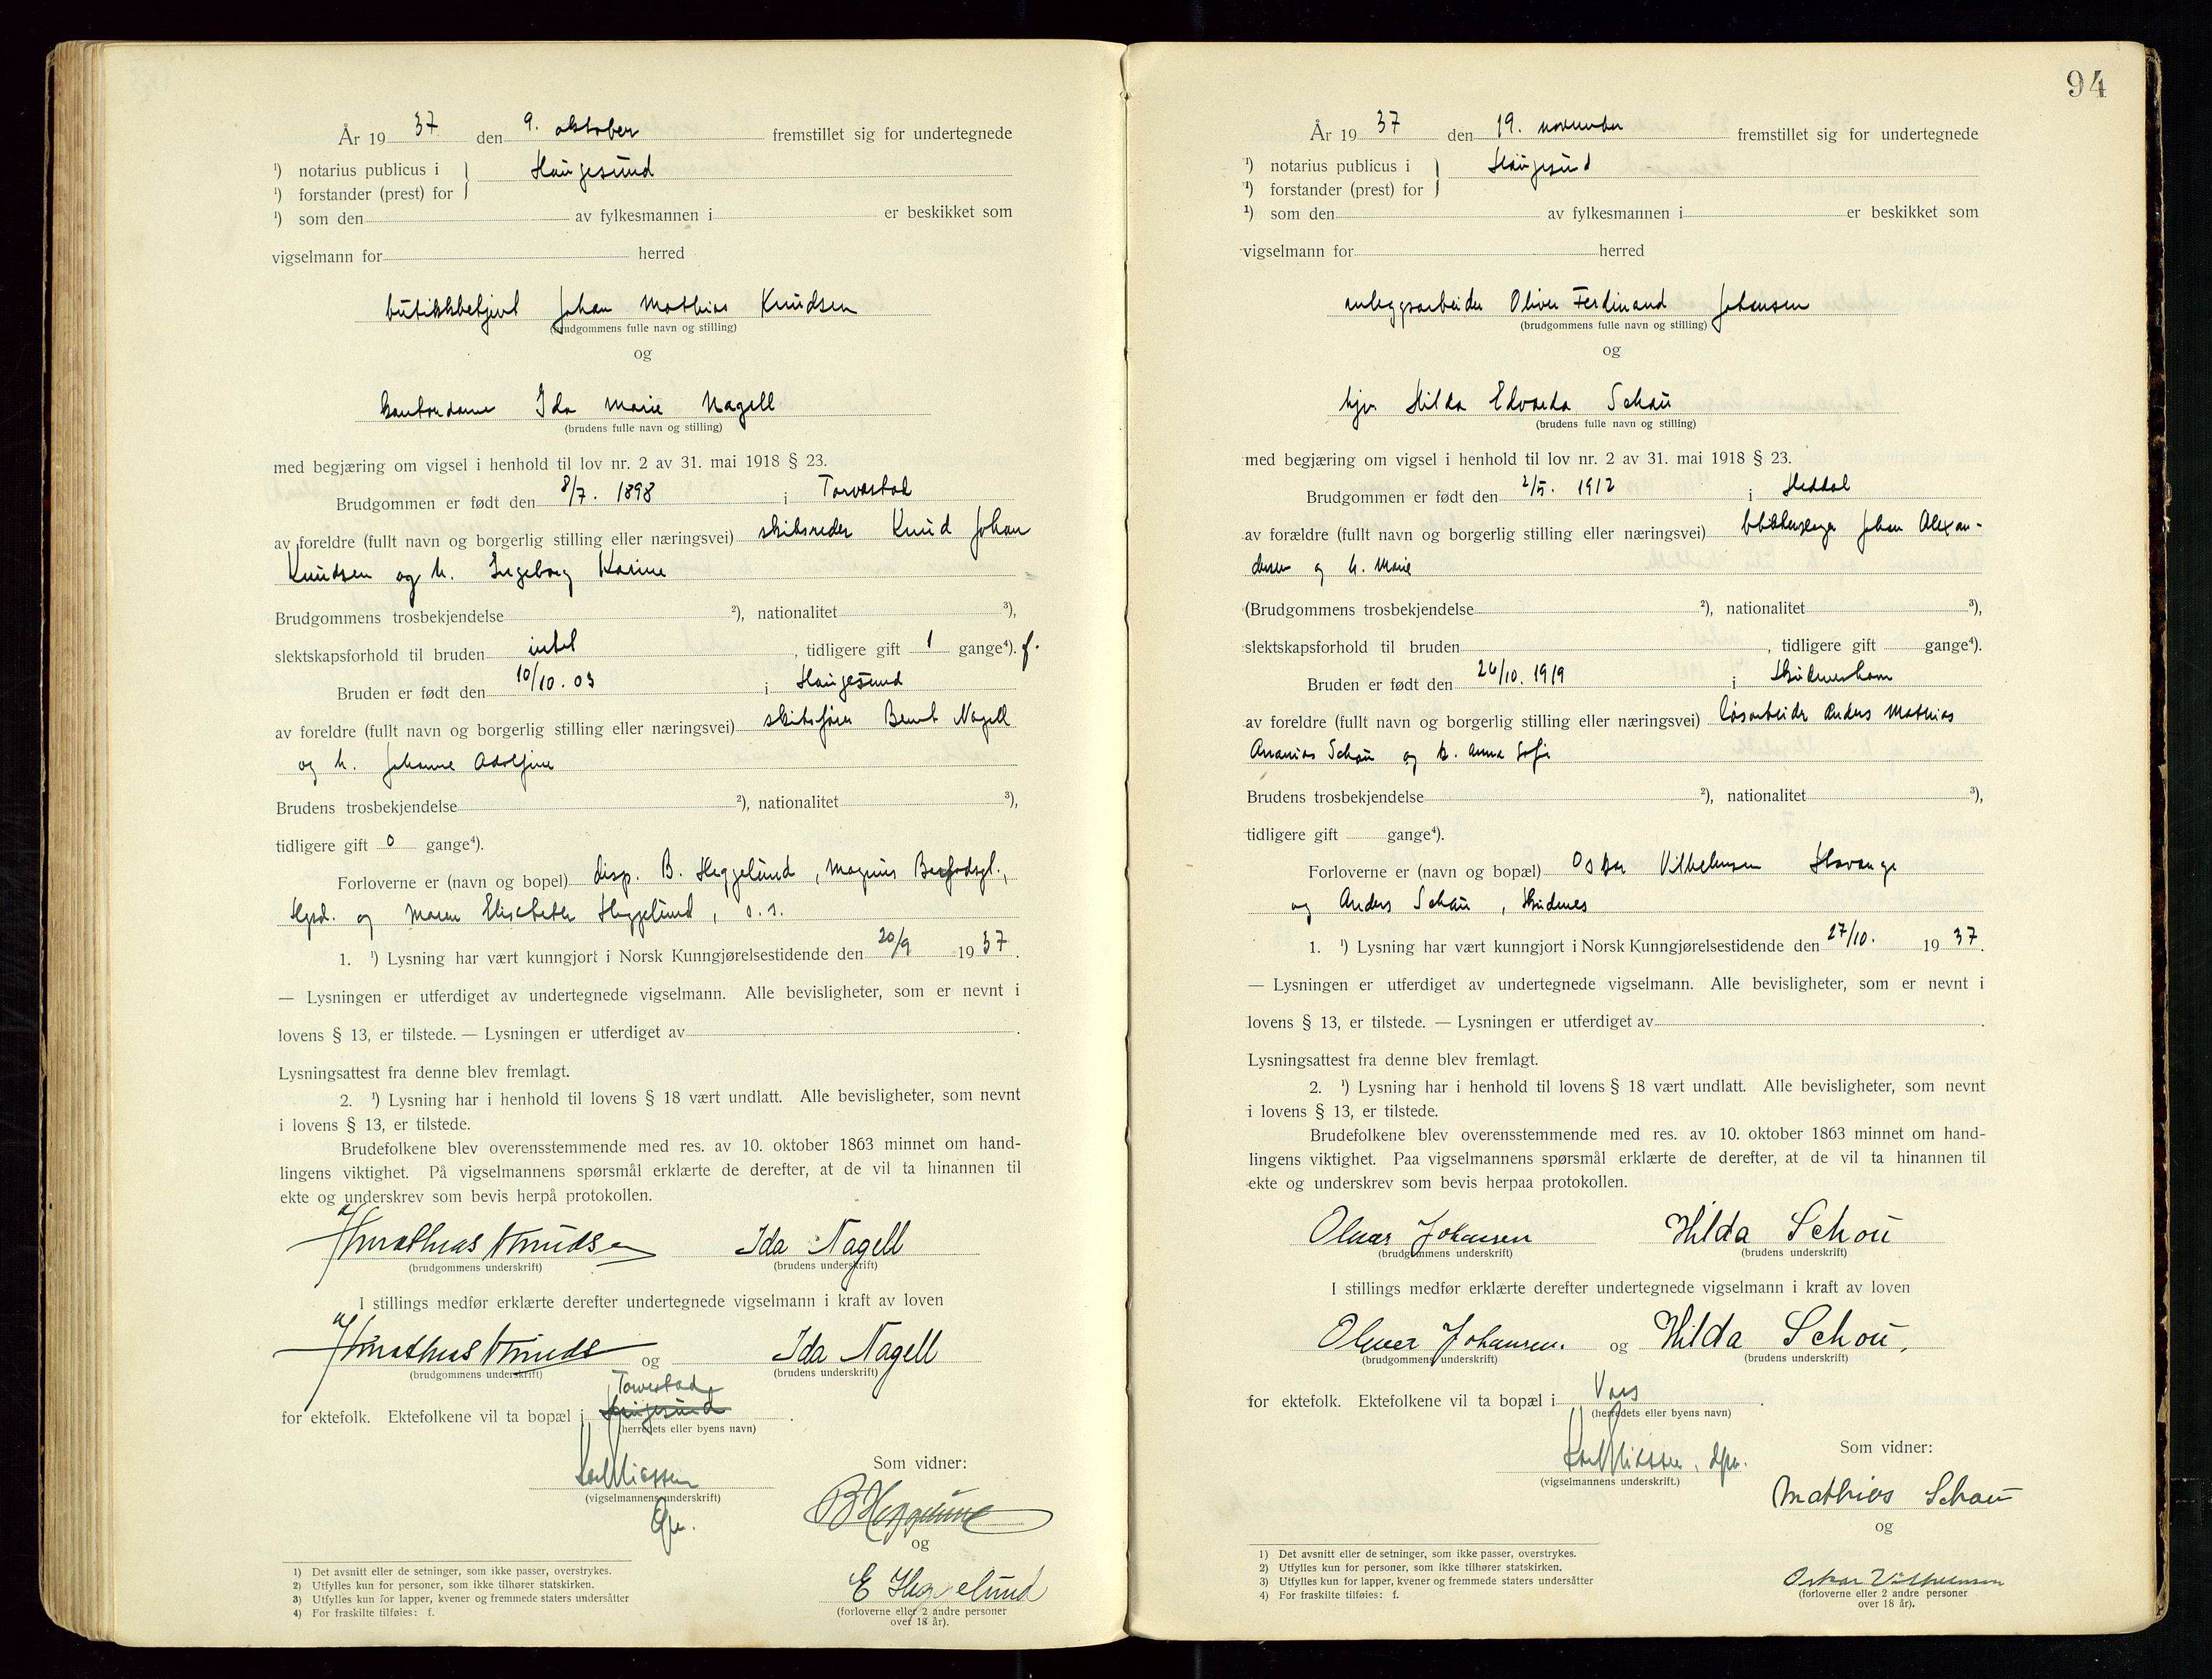 År 1937 den 9. oktober fremstillet sig for undertegnede
¹) notarius publicus i } Haugesund
¹) forstander (prest) for
¹) som den av fylkesmannen i er beskikket som
vigselmann for herred
butikkbetjent Johan Mathias Knudsen
(brudgommens fulle navn og stilling)
og
kontordame Ida Marie Nagell
(brudens fulle navn og stilling)
med begjæring om vigsel i henhold til lov nr. 2 av 31. mai 1918 § 23.
Brudgommen er født den 8/7. 1898 i Torvastad
av foreldre (fullt navn og borgerlig stilling eller næringsvei) skibsreder Knud Johan
Knudsen og h. Ingeborg Karine
Brudgommens trosbekjendelse ²), nationalitet ³),
slektskapsforhold til bruden intet, tidligere gift 1 gange⁴). f.
Bruden er født den 10/10. 03 i Haugesund
av foreldre (fullt navn og borgerlig stilling eller næringsvei) skibsfører Bernt Nagell
og h. Johanne Adolfine
Brudens trosbekjendelse ²), nationalitet ³),
tidligere gift 0 gange⁴).
Forloverne er (navn og bopel) disp. B. Heggelund, Magnus Barfodsgt.,
Hgsd. og Maren Elisabeth Heggelund, s. s.
1. ¹) Lysning har vært kunngjort i Norsk Kunngjørelsestidende den 20/9 1937.
— Lysningen er utferdiget av undertegnede vigselmann. Alle bevisligheter, som er nevnt i
lovens § 13, er tilstede. — Lysningen er utferdiget av .
Lysningsattest fra denne blev fremlagt.
2. ¹) Lysning har i henhold til lovens § 18 vært undlatt. Alle bevisligheter, som nevnt
i lovens § 13, er tilstede.
Brudefolkene blev overensstemmende med res. av 10. oktober 1863 minnet om hand-
lingens viktighet. På vigselmannens spørsmål erklærte de derefter, at de vil ta hinannen til
ekte og underskrev som bevis herpå protokollen.
J Mathias Knudsen Ida Nagell
(brudgommens underskrift) (brudens underskrift)
I stillings medfør erklærte derefter undertegnede vigselmann i kraft av loven
J Mathias Knuds og Ida Nagell
(brudgommens underskrift) (brudens underskrift)
Torvestad
for ektefolk. Ektefolkene vil ta bopæl i Haugesund.
(herredets eller byens navn)
Som vidner:
(vigselmannens underskrift)
B Heggelund
og
E Heggelund
(forloverne eller 2 andre personer
over 18 år).
1) Det avsnitt eller de setninger, som ikke passer, overstrykes.
2) Utfylles kun for personer, som ikke tilhører statskirken.
3) Utfylles kun for lapper, kvener og fremmede staters undersåtter
4) For fraskilte tilføies: f.
94
År 1937 den 19. november fremstillet sig for undertegnede
¹) notarius publicus i } Haugesund
¹) forstander (prest) for
¹) som den av fylkesmannen i er beskikket som
vigselmann for herred
anleggsarbeider Oliver Ferdinand Johansen
(brudgommens fulle navn og stilling)
og
hjv Hilda Edvarda Schau
(brudens fulle navn og stilling)
med begjæring om vigsel i henhold til lov nr. 2 av 31. mai 1918 § 23.
Brudgommen er født den 2/5. 1912 i Heddal
av forældre (fullt navn og borgerlig stilling eller næringsvei) blikkenslager Johan Alexan-
dersen og h. Marie
(Brudgommens trosbekjendelse ²), nationalitet ³),
slektskapsforhold til bruden , tidligere gift gange⁴).
Bruden er født den 26/10. 1919 i Skudeneshavn
av foreldre (fullt navn og borgerlig stilling eller næringsvei) løsarbeider Anders Mathias
Ananias Schau og h. Anna Sofie
Brudens trosbekjendelse ²), nationalitet ³),
tidligere gift gange⁴).
Forloverne er (navn og bopæl) Oskar Vilhelmsen
og Anders Schau, Skudenes
1. ¹) Lysning har vært kunngjort i Norsk Kunngjørelsestidende den 27/10. 1937.
— Lysningen er utferdiget av undertegnede vigselmann. Alle bevisligheter, som er nevnt i
lovens § 13, er tilstede. — Lysningen er utferdiget av .
Lysningsattest fra denne blev fremlagt.
2. ¹) Lysning har i henhold til lovens § 18 vært undlatt. Alle bevisligheter, som nevnt
i lovens § 13, er tilstede.
Brudefolkene blev overensstemmende med res. av 10. oktober 1863 minnet om hand-
lingens viktighet. Paa vigselmannens spørsmål erklærte de derefter, at de vil ta hinannen til
ekte og underskrev som bevis herpaa protokollen.
Olvar Johansen Hilda Schou
(brudgommens underskrift) (brudens underskrift)
I stillings medfør erklærte derefter undertegnede vigselmann i kraft av loven
Oliver Johansen. og Hilda Schou,
(brudgommens underskrift) (brudens underskrift)
for ektefolk. Ektefolkene vil ta bopæl i Vats.
(herredets eller byens navn)
Som vidner:
(vigselmannens underskrift.)
Mathias Schau
og
Oskar Vilhelmsen
(forloverne eller 2 andre personer
over 18 år).
1) Det avsnitt eller de setninger, som ikke passer, overstrykes.
2) Utfylles kun for personer, som ikke tilhører statskirken.
3) Utfylles kun for lapper, kvener og fremmede staters undersåtter
4) For fraskilte tilføies: f.